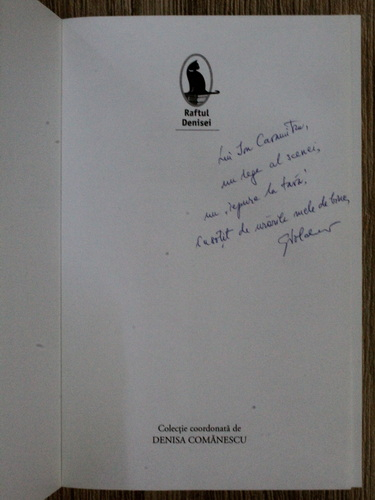 Raftul
Denisei
Lui Ion Caramitru,
un rege al scenei,
un „iepure la țară”
însoțit de urările mele de bine,
Colecție coordonată de
DENISA COMĂNESCU